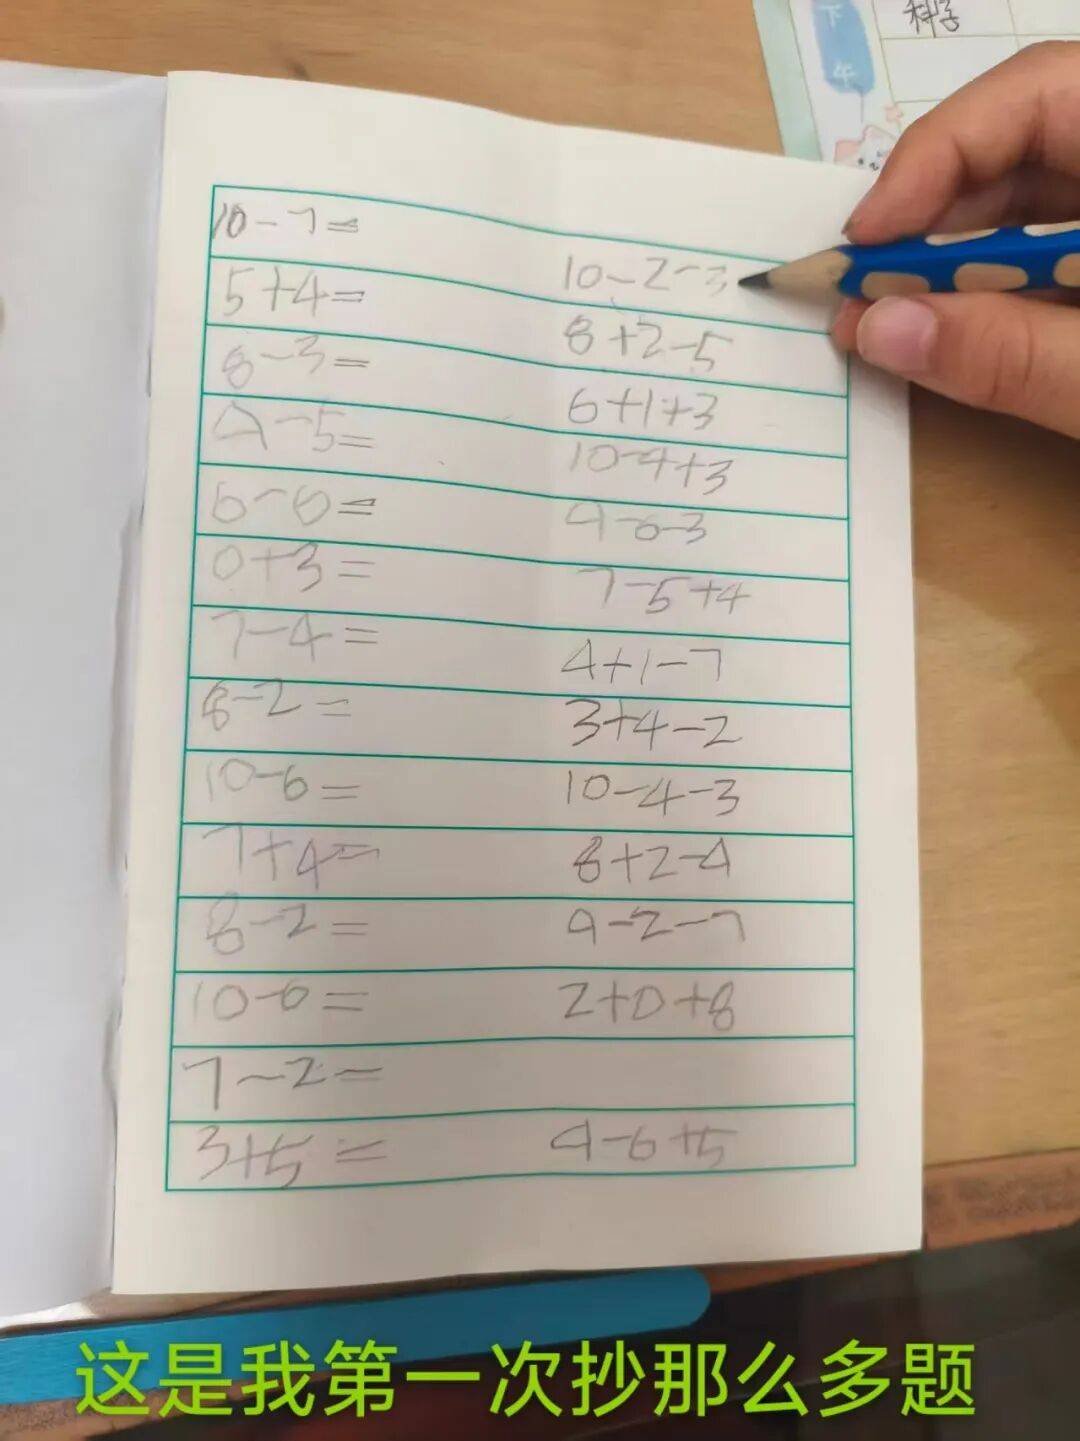 下午
科学
10-7=
5+4=
8-3=
9-5=
6-6=
0+3=
7-4=
8-2=
10-6=
7+4=
8-2=
10-6=
7-2=
3+5=
10-2-3
8+2-5
6+1+3
10-4+3
9-6-3
7-5+4
4+1-7
3+4-2
10-4-3
8+2-4
9-2-7
2+0+8
9-6+5
这是我第一次抄那么多题